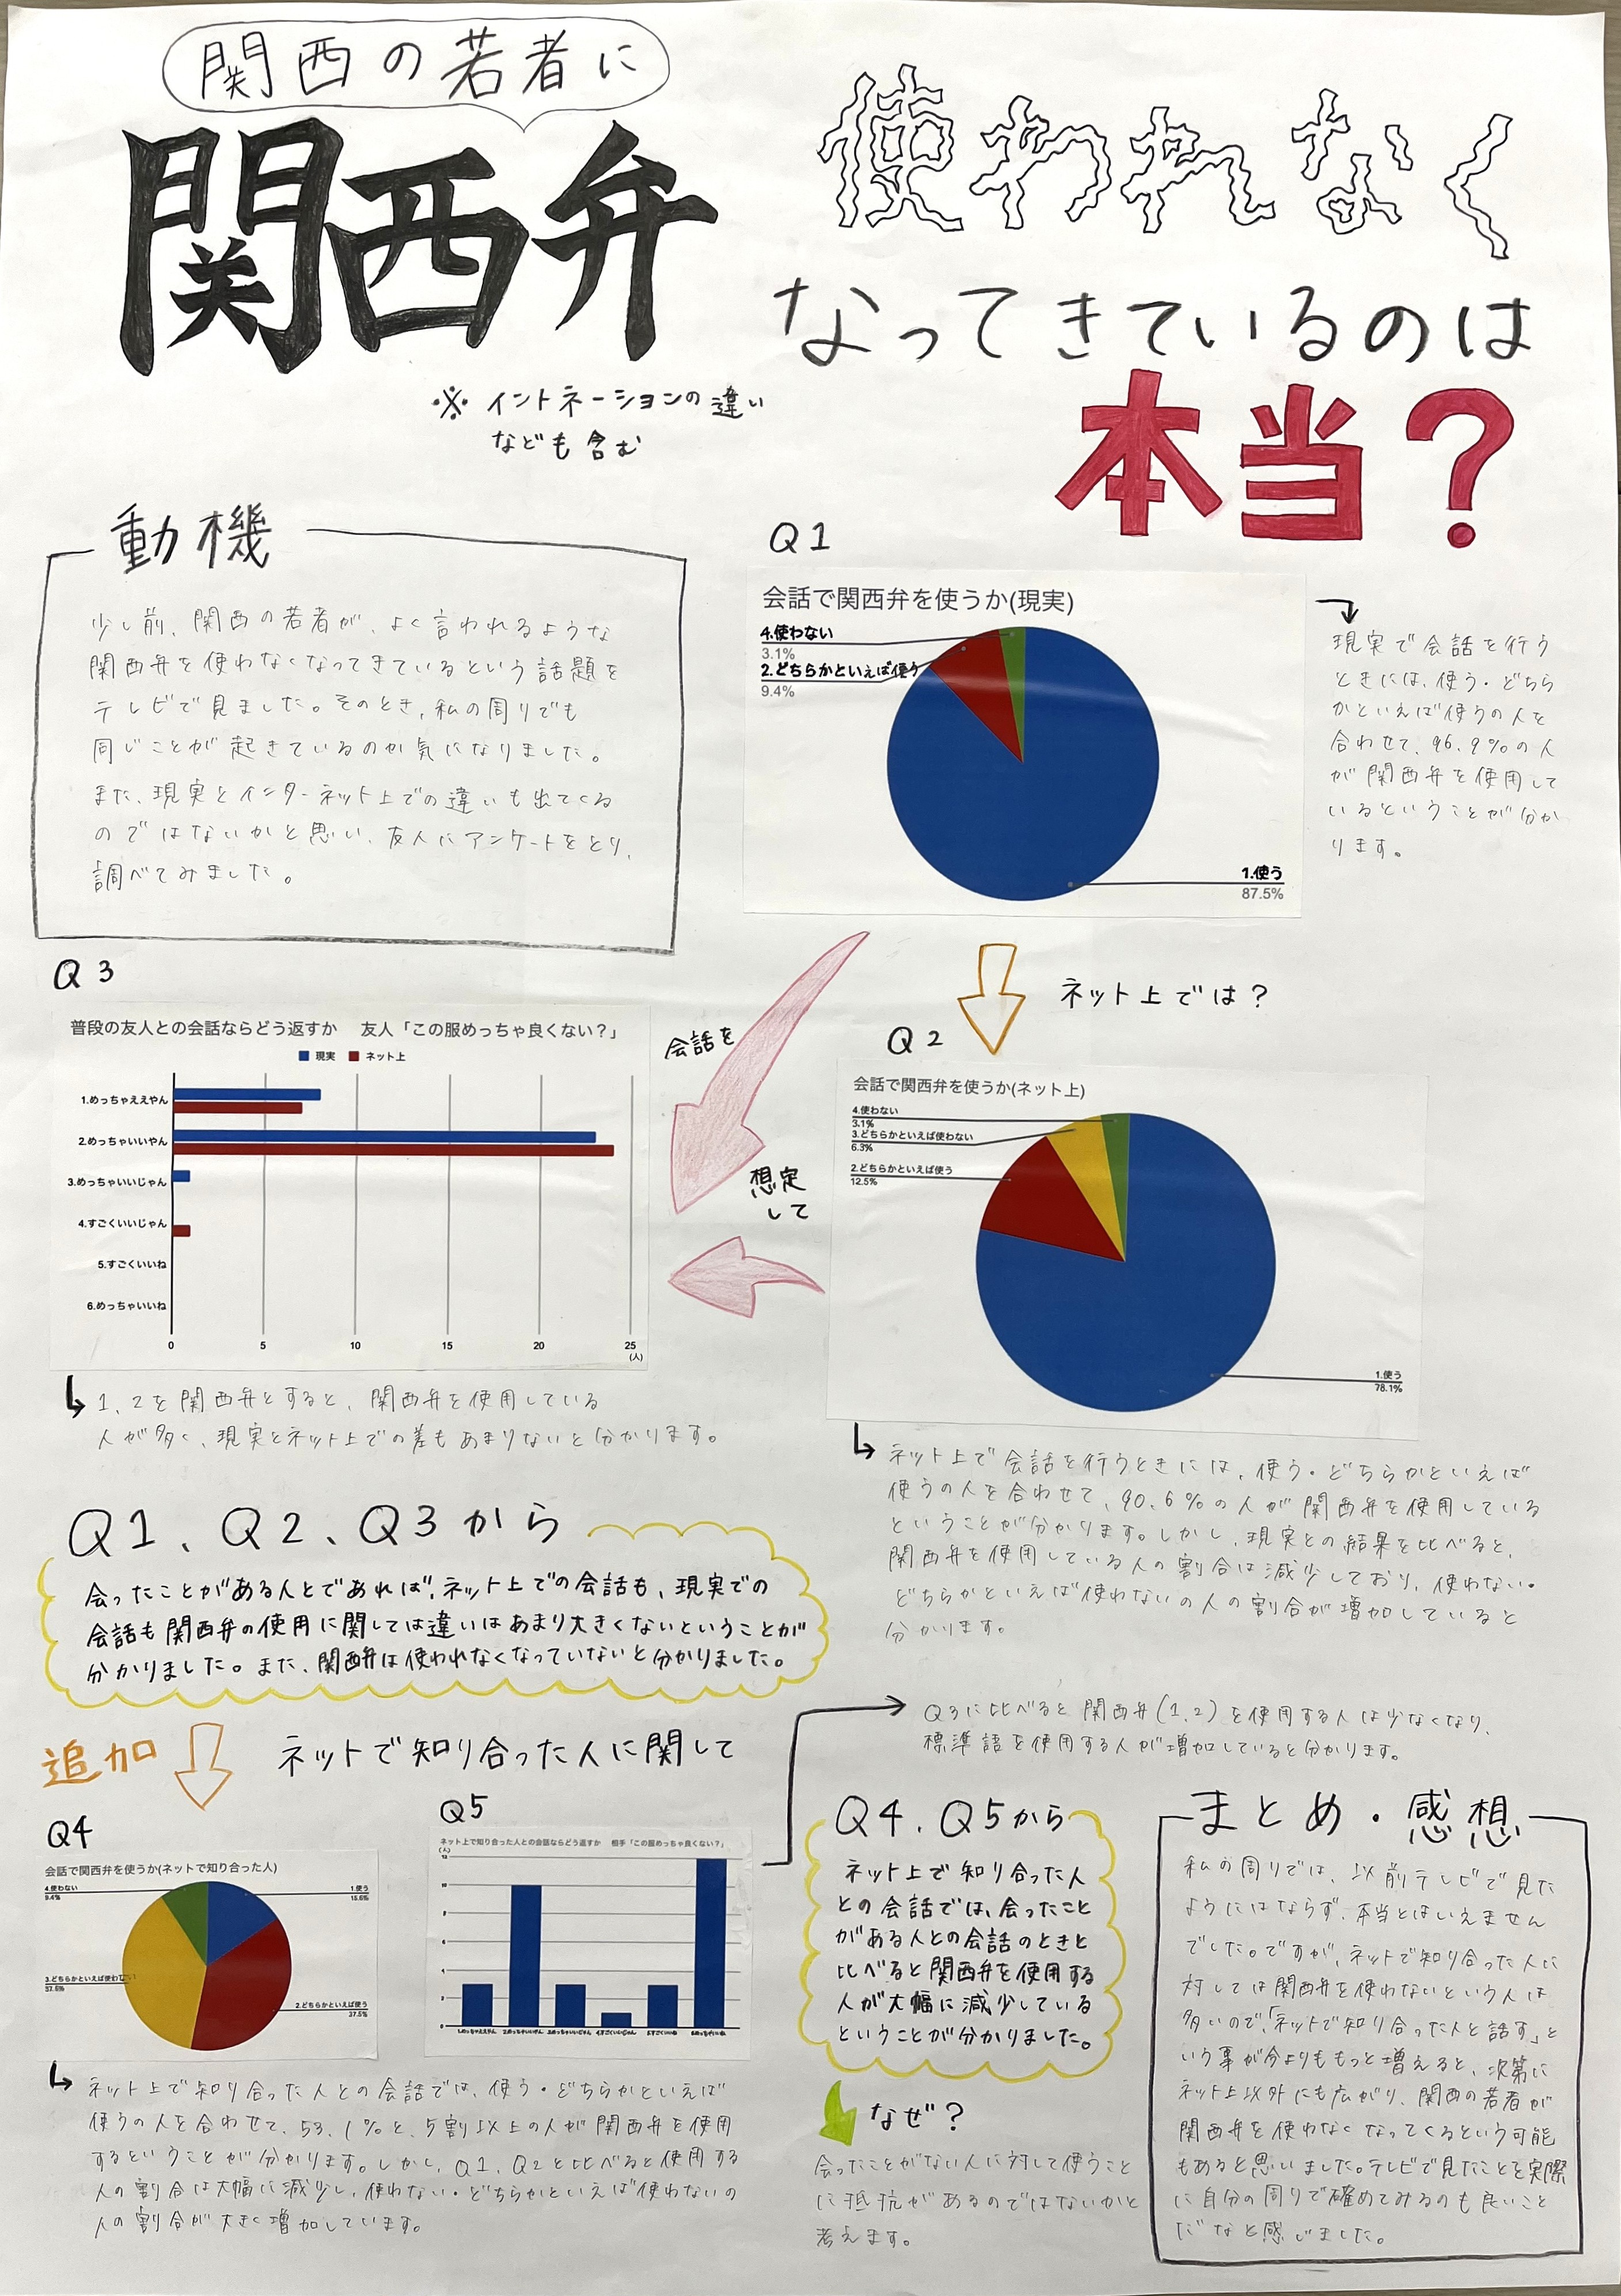 関西の若者に
関西弁
使われなく
なってきているのは
本当?
※ イントネーションの違い
なども含む
動機
少し前、関西の若者が、よく言われるような
関西弁を使わなくなってきているという話題を
テレビで見ました。そのとき、私の周りでも
同じことが起きているのか気になりました。
また、現実とインターネット上での違いも出てくる
のではないかと思い、友人にアンケートをとり、
調べてみました。
Q1
会話で関西弁を使うか(現実)
4.使わない
3.1%
2.どちらかといえば使う
9.4%
1.使う
87.5%
現実で会話を行う
ときには、使う・どちら
かといえば使うの人を
合わせて、96.9%の人
が関西弁を使用して
いるということが分か
ります。
ネット上では?
Q2
会話で関西弁を使うか(ネット上)
4.使わない
3.1%
3.どちらかといえば使わない
6.3%
2.どちらかといえば使う
12.5%
1.使う
78.1%
ネット上で会話を行うときには、使う・どちらかといえば
使うの人を合わせて、90.6%の人が関西弁を使用している
ということが分かります。しかし、現実との結果を比べると、
関西弁を使用している人の割合は減少しており、使わない・
どちらかといえば使わないの人の割合が増加していると
分かります。
会話を
想定
して
Q3
普段の友人との会話ならどう返すか 友人「この服めっちゃ良くない?」
現実 ネット上
1.めっちゃええやん
2.めっちゃいいやん
3.めっちゃいいじゃん
4.すごくいいじゃん
5.すごくいいね
6.めっちゃいいね
0 5 10 15 20 25
(人)
1、2を関西弁とすると、関西弁を使用している
人が多く、現実とネット上での差もあまりないと分かります。
Q1、Q2、Q3から
会ったことがある人とであれば、ネット上での会話も、現実での
会話も関西弁の使用に関しては違いはあまり大きくないということが
分かりました。また、関西弁は使われなくなっていないと分かりました。
追加
ネットで知り合った人に関して
Q4
会話で関西弁を使うか(ネットで知り合った人)
4.使わない
9.4%
1.使う
15.6%
3.どちらかといえば使わない
37.5%
2.どちらかといえば使う
37.5%
ネット上で知り合った人との会話では、使う・どちらかといえば
使うの人を合わせて、53.1%と、5割以上の人が関西弁を使用
するということが分かります。しかし、Q1、Q2と比べると使用する
人の割合は大幅に減少し、使わない・どちらかといえば使わないの
人の割合が大きく増加しています。
Q5
ネット上で知り合った人との会話ならどう返すか 相手「この服めっちゃ良くない?」
(人)
12
10
8
6
4
2
0
1.めっちゃええやん 2.めっちゃいいやん 3.めっちゃいいじゃん 4.すごくいいじゃん 5.すごくいいね 6.めっちゃいいね
Q3に比べると関西弁(1、2)を使用する人は少なくなり、
標準語を使用する人が増加していると分かります。
Q4、Q5から
ネット上で知り合った人
との会話では、会ったこと
がある人との会話のときと
比べると関西弁を使用する
人が大幅に減少している
ということが分かりました。
なぜ?
会ったことがない人に対して使うこと
に抵抗があるのではないかと
考えます。
まとめ・感想
私の周りでは、以前テレビで見た
ようにはならず、本当とはいえません
でした。ですが、ネットで知り合った人に
対しては関西弁を使わないという人は
多いので、「ネットで知り合った人と話す」と
いう事が今よりももっと増えると、次第に
ネット上以外にも広がり、関西の若者が
関西弁を使わなくなってくるという可能
もあると思いました。テレビで見たことを実際
に自分の周りで確めてみるのも良いこと
だなと感じました。